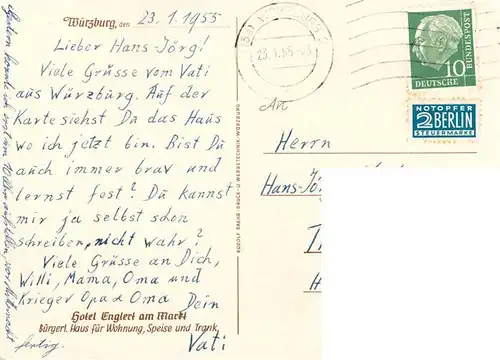 Würzburg, den 23.1.1955
Lieber Hans Jörg!
Viele Grüsse vom Vati
aus Würzburg. Auf der
Karte siehst Du das Haus
wo ich jetzt bin. Bist Du
auch immer brav und
lernst fest? Du kannst
mir ja selbst schon
schreiben, nicht wahr?
Viele Grüsse an Dich,
Willi, Mama, Oma und
Krieger Opa & Oma
Dein
Vati
Hotel Englert am Markt
Bürgerl. Haus für Wohnung, Speise und Trank
Gestern konnte ich erst um
fertig.
RUDOLF BAUER, DRUCK- U. WERBETECHNIK, WÜRZBURG
23.1.55
10
DEUTSCHE
BUNDESPOST
NOTOPFER
2 BERLIN
STEUERMARKE
An
Herrn
Hans-Jör